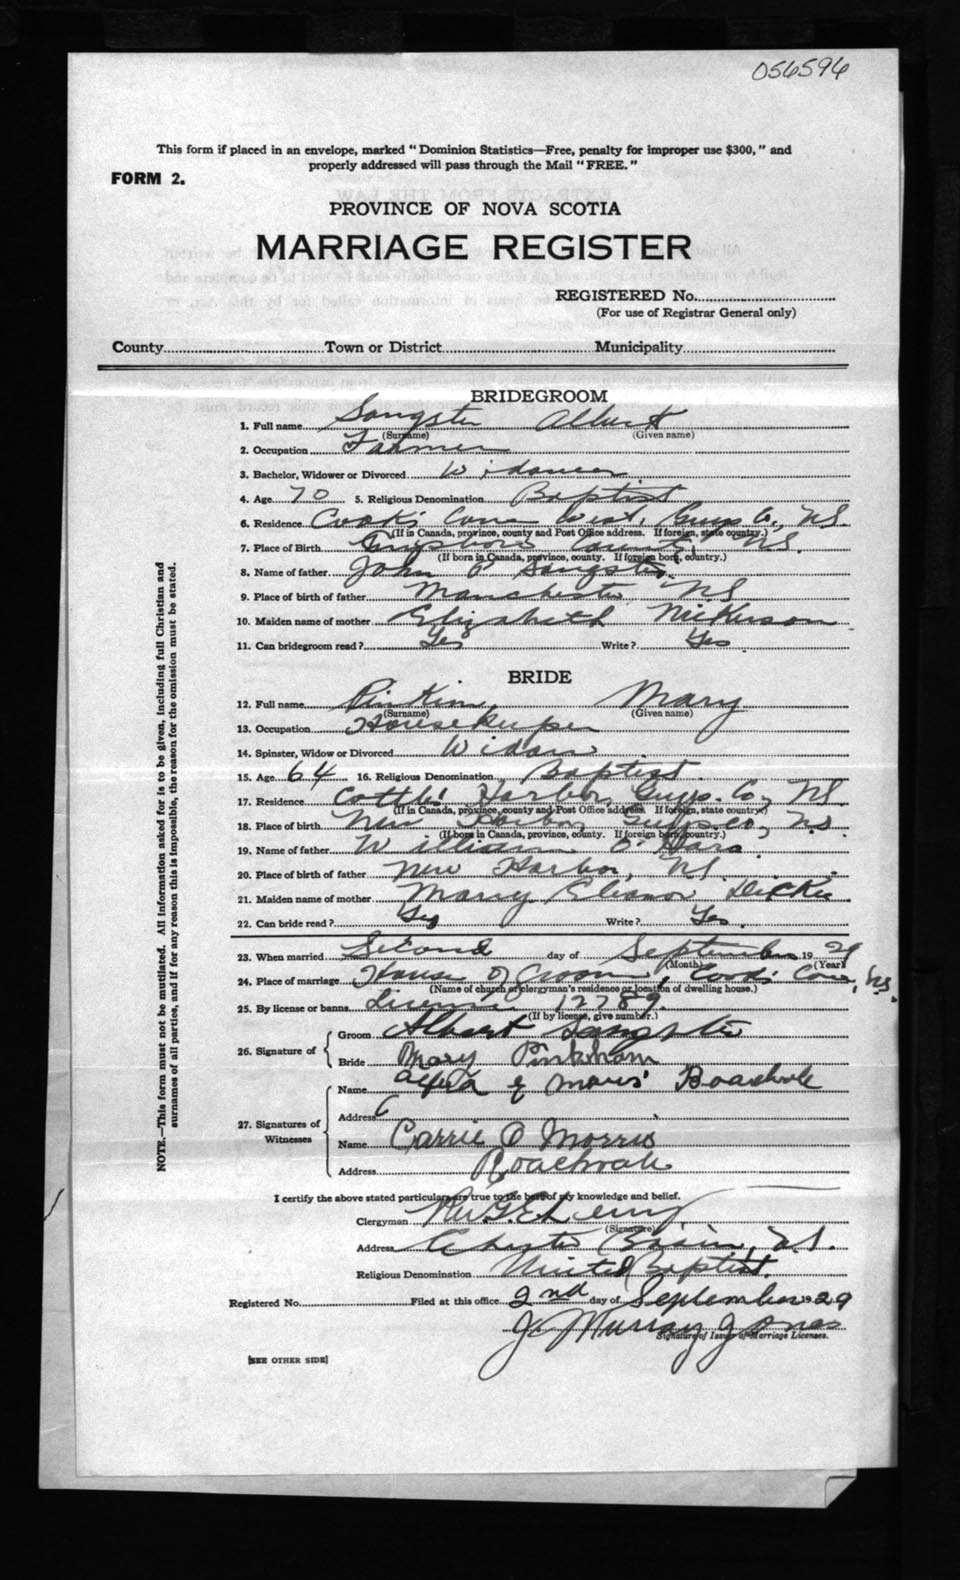 056596
This form if placed in an envelope, marked "Dominion Statistics—Free, penalty for improper use $300," and
properly addressed will pass through the Mail "FREE."
FORM 2.
PROVINCE OF NOVA SCOTIA
MARRIAGE REGISTER
REGISTERED No.
(For use of Registrar General only)
County Town or District Municipality
BRIDEGROOM
1. Full name Sangster Albert
(Surname) (Given name)
2. Occupation Farmer
3. Bachelor, Widower or Divorced Widower
4. Age 70 5. Religious Denomination Baptist
6. Residence Cook's Cove West, Guys Co, NS.
(If in Canada, province, county and Post Office address. If foreign, state country.)
7. Place of Birth Guysboro County NS.
(If born in Canada, province, county. If foreign born, country.)
8. Name of father John O Sangster
9. Place of birth of father Manchester NS
10. Maiden name of mother Elizabeth Nickerson
11. Can bridegroom read? Yes Write? Yes
BRIDE
12. Full name Mary
(Surname) (Given name)
13. Occupation Housekeeper
14. Spinster, Widow or Divorced Widow
15. Age 64 16. Religious Denomination Baptist
17. Residence Harbor, Guys. Co, NS.
(If in Canada, province, county and Post Office address. If foreign, state country.)
18. Place of birth New Harbor, Guys. Co, NS
(If born in Canada, province, county. If foreign born, country.)
19. Name of father William O'Hara
20. Place of birth of father New Harbor, NS.
21. Maiden name of mother Mary Elenor Dickie
22. Can bride read? Yes Write? Yes.
23. When married Second day of September 1929
(Month) (Year)
24. Place of marriage House of Groom, Cook's Cove, NS.
(Name of church or clergyman's residence or location of dwelling house.)
25. By license or banns License 12789.
(If by license, give number.)
26. Signature of Groom Albert Sangster
Bride Mary Pinkham
27. Signatures of Witnesses Name Boachvale
Address
Name Carrie O Morris
Address Roachvale
I certify the above stated particulars are true to the best of my knowledge and belief.
Clergyman Rev.
(Signature)
Address Chester Basin, N.S.
Religious Denomination United Baptist.
Registered No. Filed at this office 2nd day of September 1929
J. Murray Jones
Signature of Issuer of Marriage Licenses.
[SEE OTHER SIDE]
NOTE.—This form must not be mutilated. All information asked for is to be given, including full Christian and
surnames of all parties, and if for any reason this is impossible, the reason for the omission must be stated.